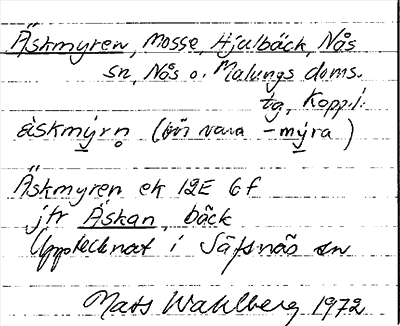 Äskmyren, mosse, Hjulbäck, Nås
sn, Nås o. Malungs doms.
tg, Kopp.l.
äskmýrn̥ (bör vara -mýra)
Äskmyren ek 12E 6f
jfr Äskan, bäck
Upptecknat i Säfsnäs sn
Mats Wahlberg 1972